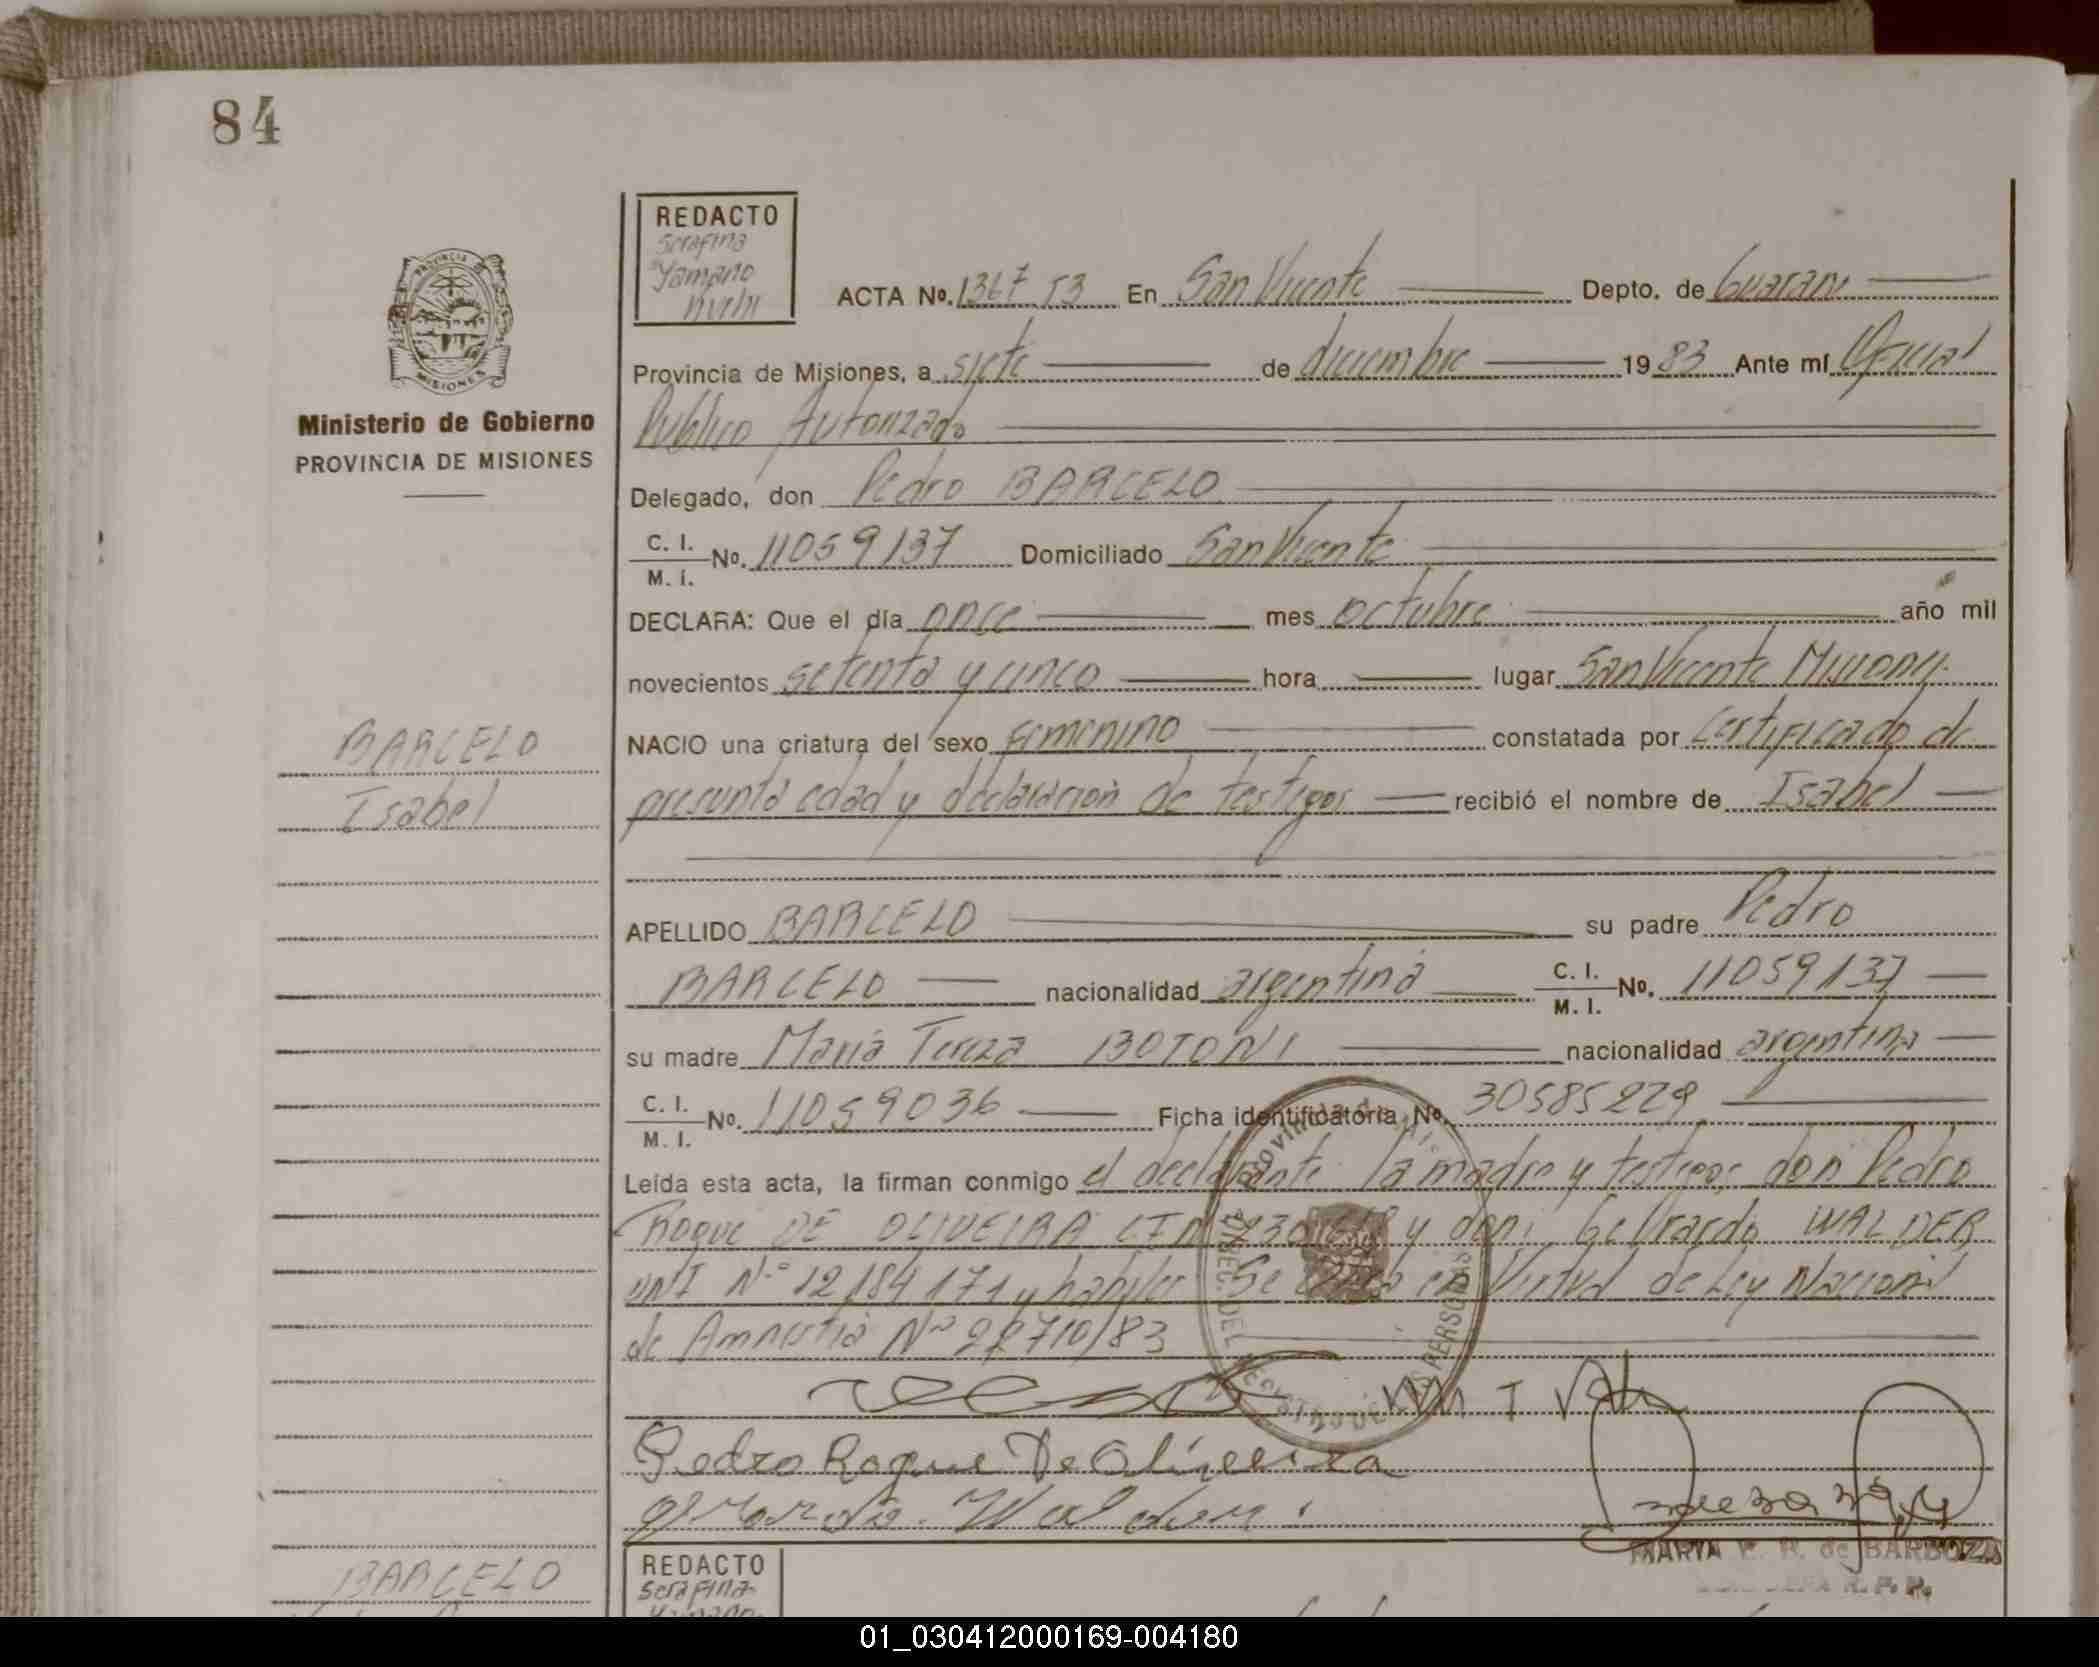 84
REDACTO
Serafina
Yamano
ACTA No. 1367 T3 En San Vicente Depto. de Guarani
Provincia de Misiones, a siete de diciembre 1983 Ante mí Oficial
Público Autorizado
PROVINCIA DE
MISIONES
Ministerio de Gobierno
PROVINCIA DE MISIONES
Delegado, don Pedro BARCELO
C. I.
M. I. No. 11059137 Domiciliado San Vicente
DECLARA: Que el día once mes octubre año mil
novecientos setenta y cinco hora lugar San Vicente Misiones
BARCELO
Isabel
NACIO una criatura del sexo femenino constatada por certificado de
presunta edad y declaración de testigos recibió el nombre de Isabel
APELLIDO BARCELO su padre Pedro
BARCELO nacionalidad argentina C. I.
M. I. No. 11059137
su madre Maria Tereza BOTONI nacionalidad argentina
C. I.
M. I. No. 11059036 Ficha identificatoria No. 30585229
Leída esta acta, la firman conmigo el declarante la madre y testigos don Pedro
Roque DE OLIVEIRA y don Gerardo WALDER
DNI Nº 12184171 y habiles Se en Virtud de Ley Nacional
de Amnistia Nº 22710/83
Pedro Roque De Oliveira
MARIA E. R. de BARBOZA
R. P. P.
BARCELO
REDACTO
Serafina
01_030412000169-004180